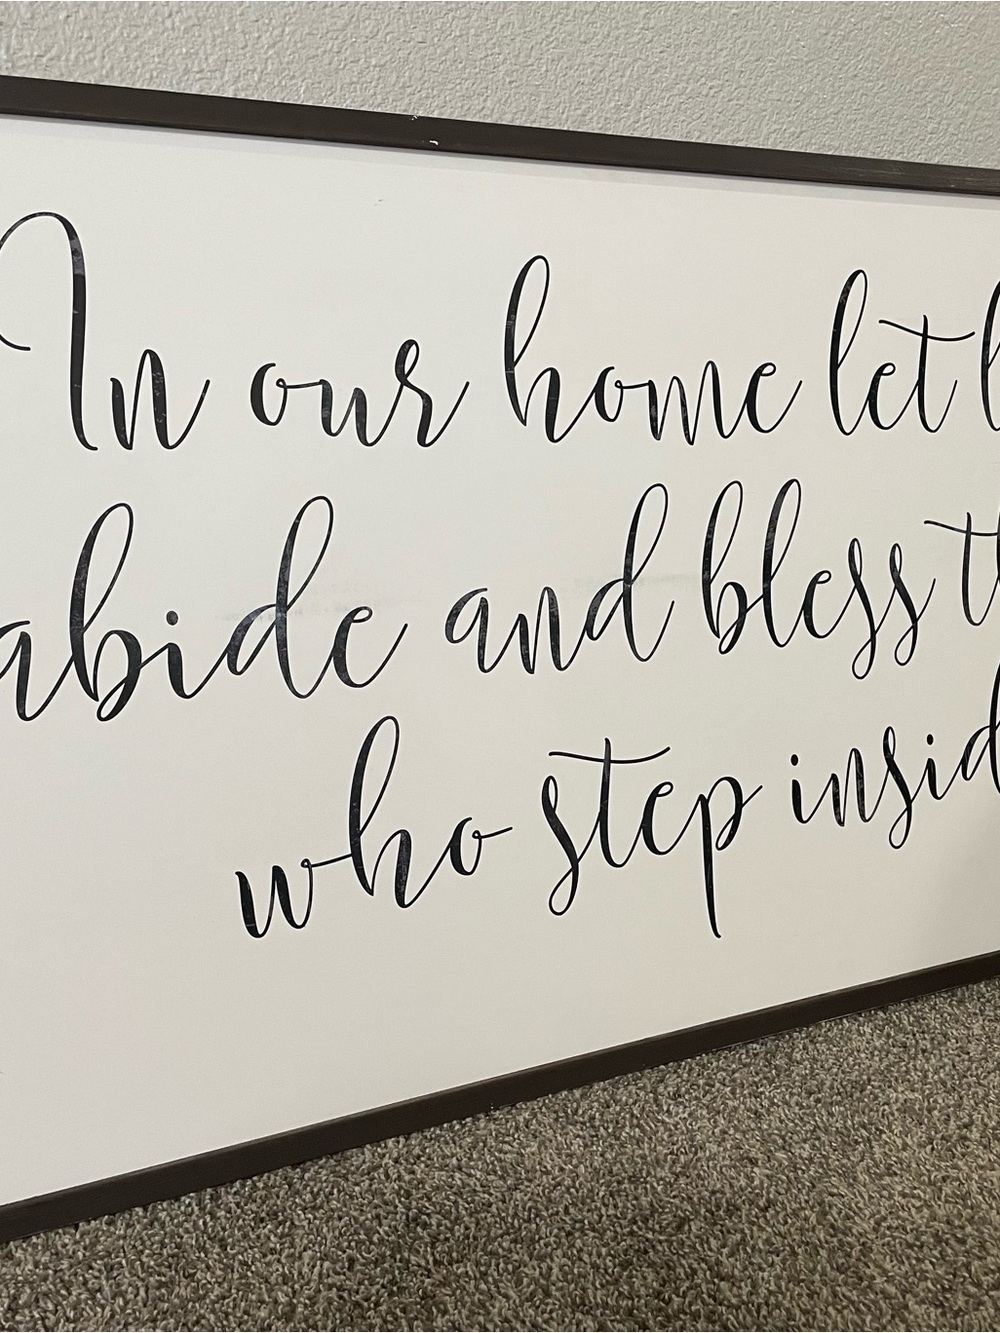 In our home let l
abide and bless th
who step insid